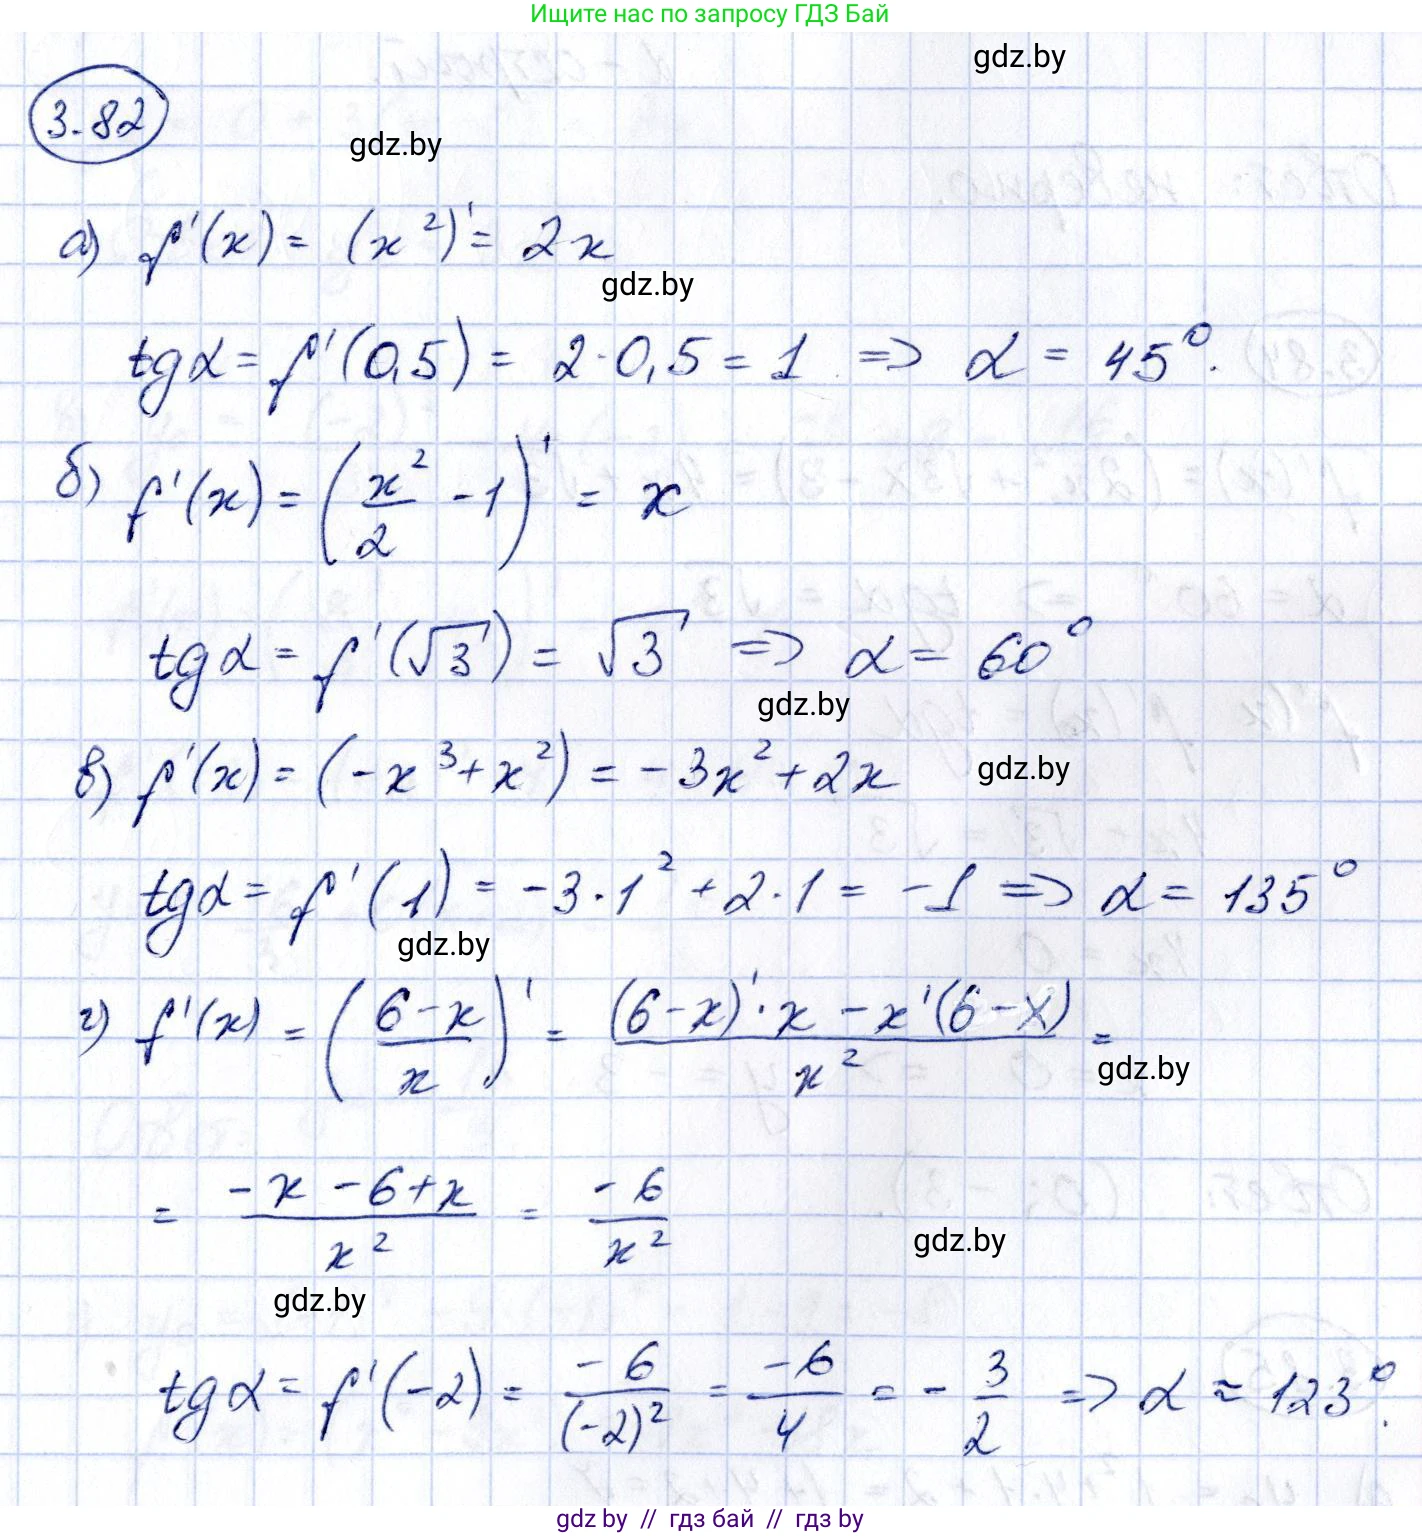 Ищите нас по запросу ГДЗ Бай
gdz.by
3.82
gdz.by
а) f'(x) = (x²)' = 2x
gdz.by
tg α = f'(0,5) = 2·0,5 = 1 => α = 45°.
б) f'(x) = (x²/2 - 1)' = x
tg α = f'(√3) = √3 => α = 60°
gdz.by
в) f'(x) = (-x³+x²) = -3x²+2x
gdz.by
tg α = f'(1) = -3·1² + 2·1 = -1 => α = 135°
gdz.by
г) f'(x) = ((6-x)/x)' = ((6-x)'·x - x'(6-x))/x² =
gdz.by
= (-x-6+x)/x² = -6/x²
gdz.by
gdz.by
tg α = f'(-2) = -6/(-2)² = -6/4 = -3/2 => α ≈ 123°.
gdz.by // гдз бай // гдз by